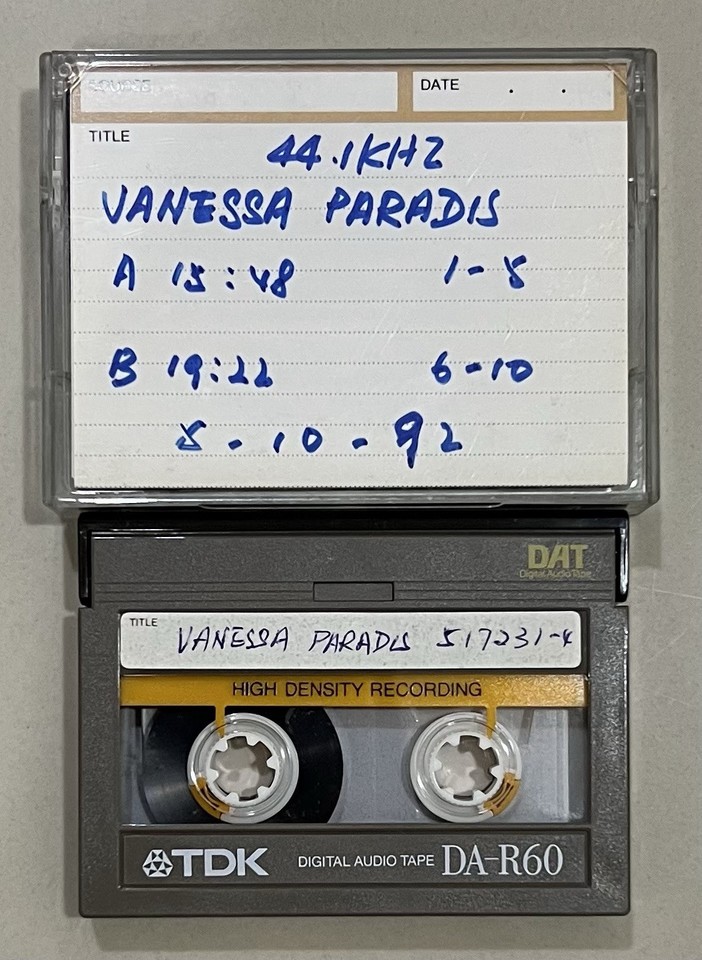 SOURCE
DATE . .
TITLE
44.1KHZ
VANESSA PARADIS
A 15:48 1-5
B 19:22 6-10
5-10-92
DAT
Digital Audio Tape
TITLE
VANESSA PARADIS 517231-4
HIGH DENSITY RECORDING
TDK DIGITAL AUDIO TAPE DA-R60